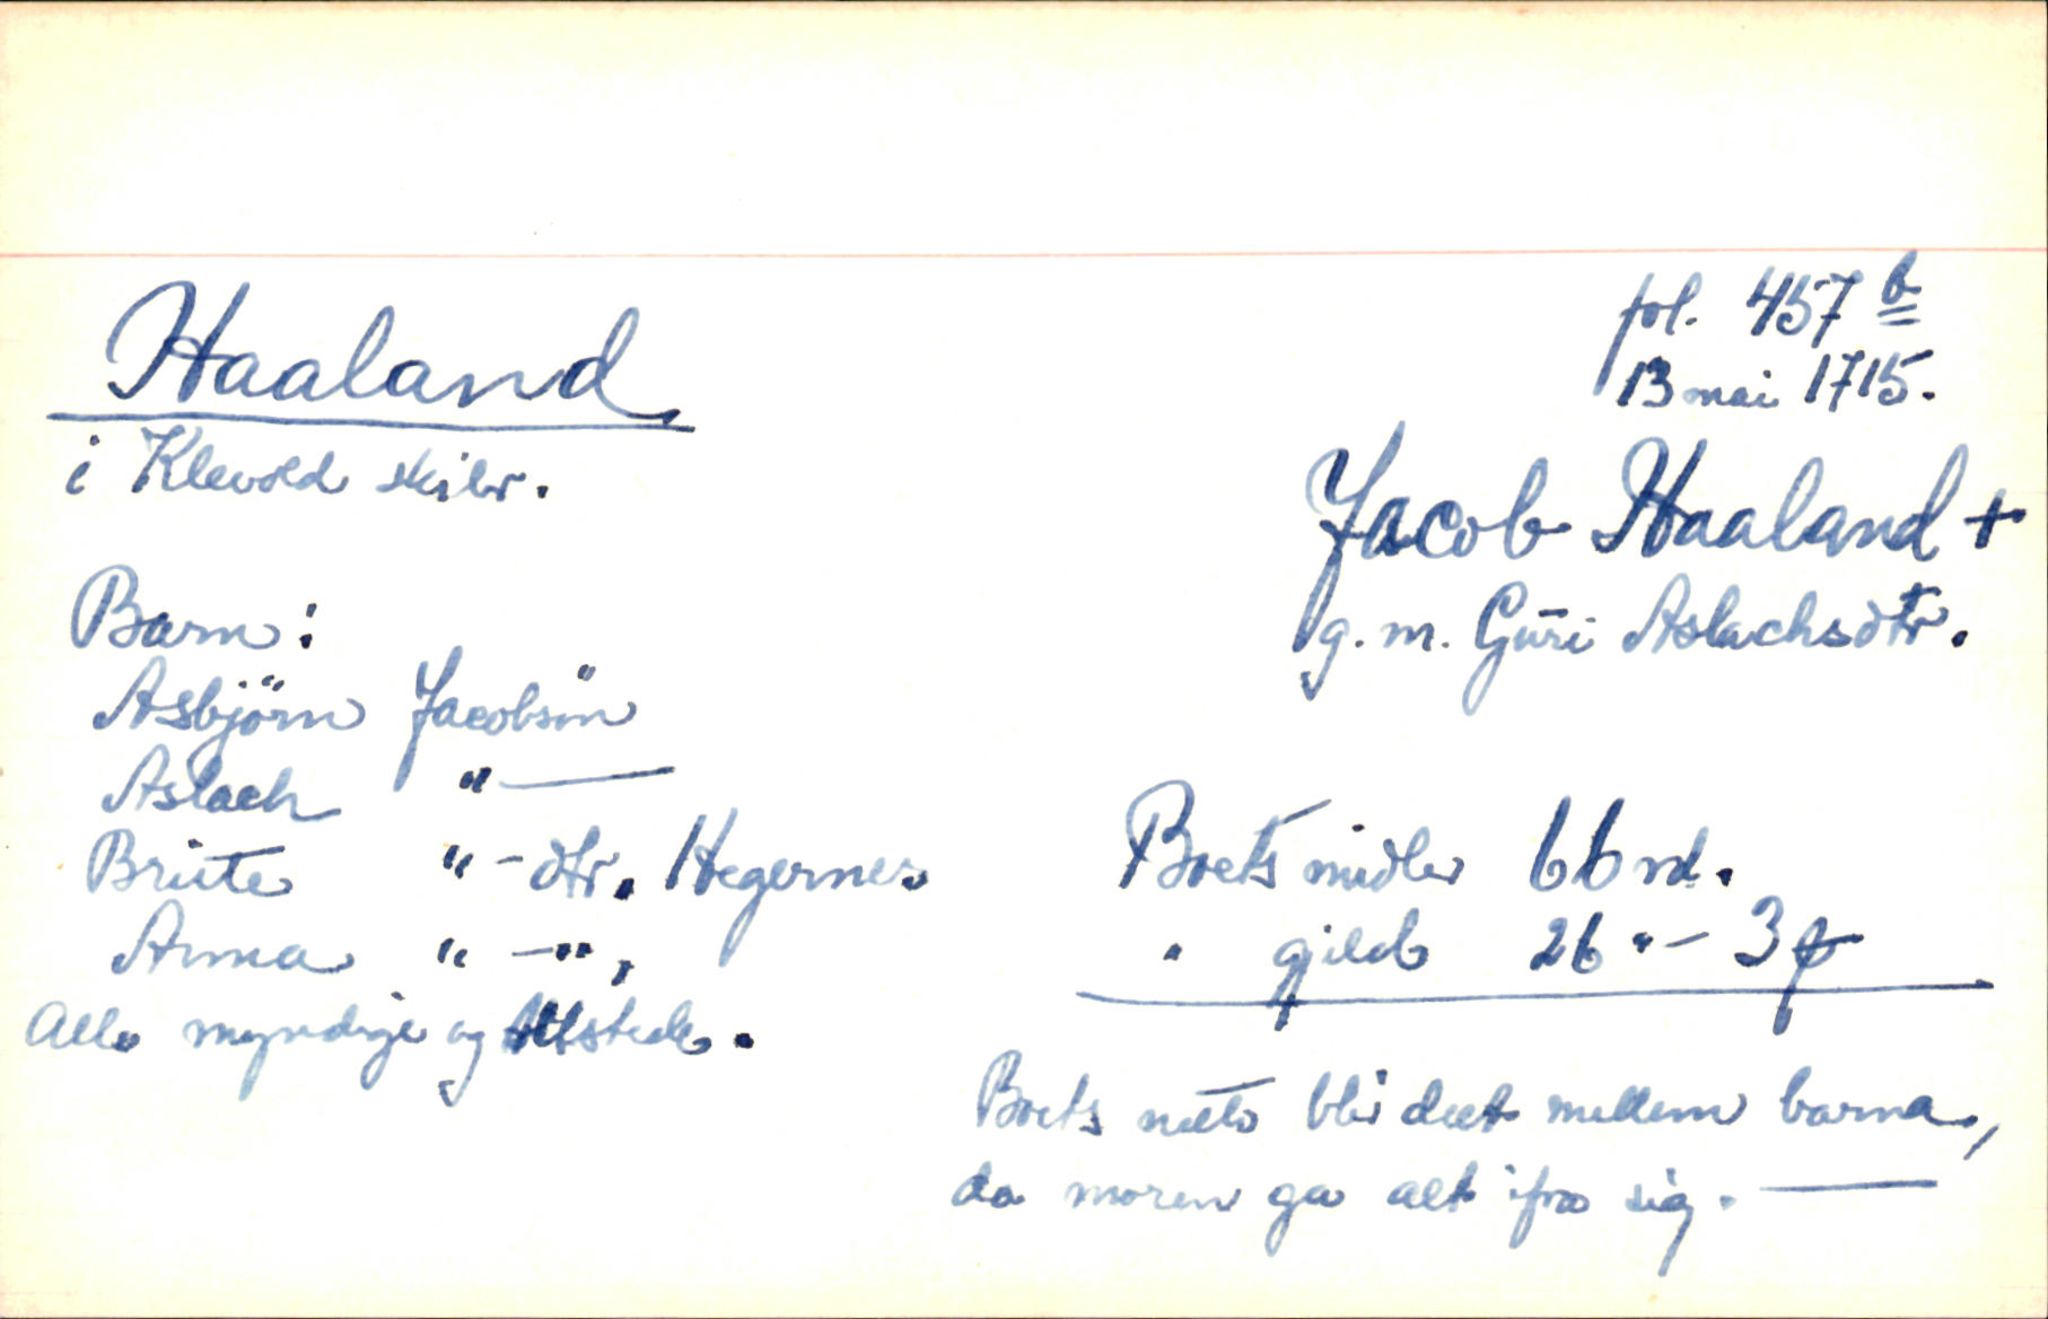 Haaland
i Klevold skibr.
fol. 457 b
13 mai 1715.
Jacob Haaland +
g. m. Gūri Aslachsdtr.
Barn:
Asbjörn Jacobsön
Aslach " —
Briite " - dtr. Hegernes.
Anna " — " ,
Alle myndige og tilstede.
Boets midler 66 rd.
" gjeld 26 " - 3 ꝑ
Boets netto blir delt mellem barna,
da moren ga alt ifra sig. —